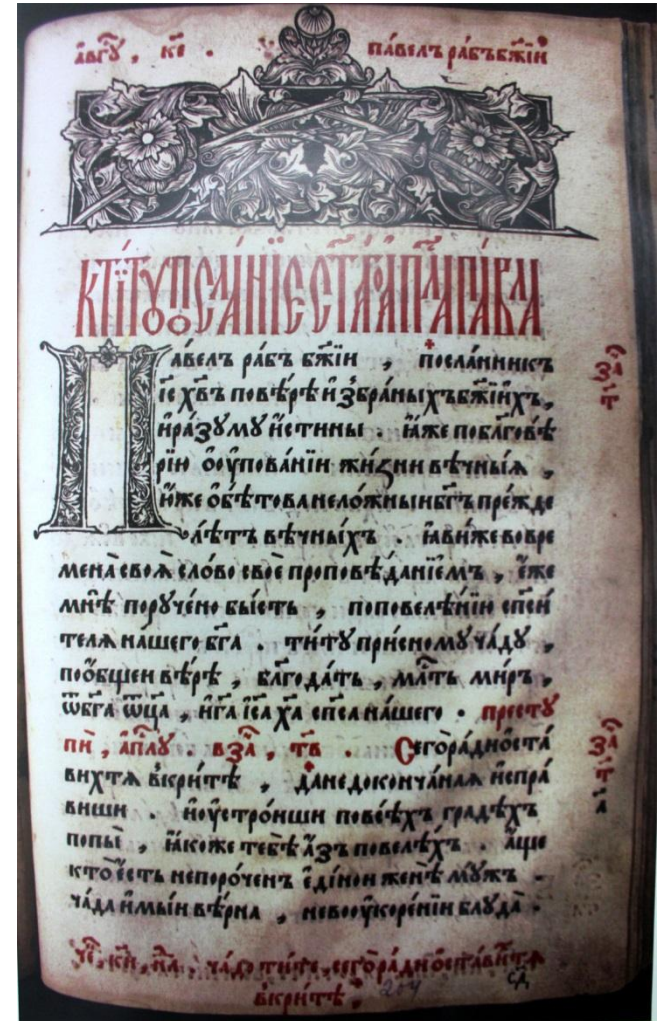 а҆́вгꙋ , к҃е . па́велъ ра́бъ бж҃їи
к̾ ті́тꙋ посла́нїе ст҃а́го а҆пⷭ҇ла па́вла
Па́велъ ра́бъ бж҃їи , посла́нникъ
і҆с҃ х҃въ по вѣ́рѣ и҆збра́ныхъ бж҃їихъ ,
и҆ ра́зꙋмꙋ и҆́стины . ꙗ҆́же по бл҃говѣ́
рїю ѻ҆ ᲂу҆пова́нїи жи́зни вѣ́чныѧ ,
ю҆́же ѻ҆бѣтова нело́жныи бг҃ъ пре́жде
лѣ́тъ вѣ́чныхъ . ꙗ҆ви́ же во вре
мена̀ своѧ̀ сло́во своѐ проповѣ́данїемъ , е҆́же
мнѣ̀ порꙋче́но бы́сть , по повелѣ́нїю сп҃си
телѧ на́шего бг҃а . ти́тꙋ при́сномꙋ ча́дꙋ ,
по ѻ҆́бщеи вѣ́рѣ , бл҃года́ть , мл҃ть ми́ръ ,
ѿ бг҃а ѻ҆ц҃а̀ , и҆ г҃а і҆с҃а х҃а сп҃са на́шего . престꙋ
пѝ , а҆пⷭ҇лꙋ . в҃ за , тв . Сего̀ ра́ди ѡ҆ста́
вихтѧ в̾кри́тѣ , да недоконча́наѧ и҆спра́
виши . и҆ ᲂу҆стро́иши по всѣ́хъ градѣ́хъ
попы̀ , ꙗ҆́коже тебѣ̀ а҆́зъ повелѣ́хъ . а҆́ще
кто̀ е҆́сть непоро́ченъ є҆ди́нои женѣ̀ мꙋ́жъ .
ча́да и҆мы́и вѣ́рна , не во ᲂу҆коре́нїи блꙋда̀ .
ча́до ти́те , сего̀ ра́ди ѡ҆ста́вихтѧ
в̾кри́тѣ ,
204
с҃д